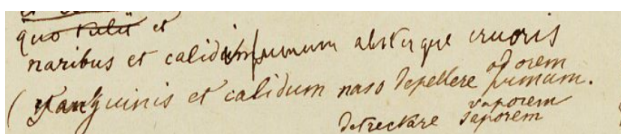 quo tulit et
naribus et calidum fumum absterque cruoris
odorem
( sanguinis et calidum naso depellere fumum.
vaporem
detrectare saporem